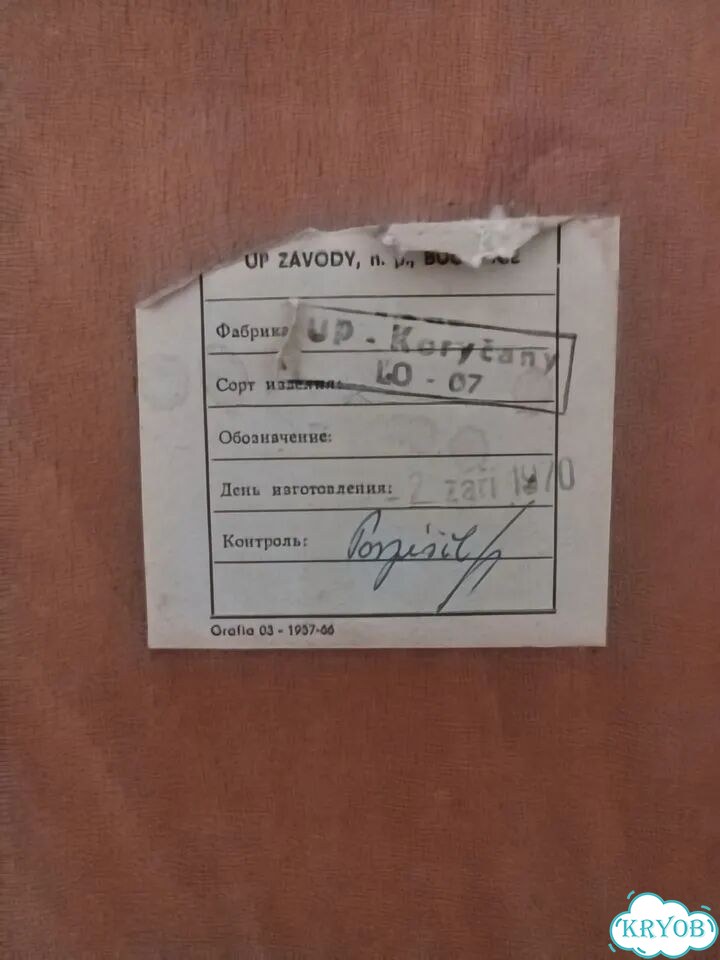 UP ZÁVODY, n. p.,
Фабрика
UP - Koryčany
Сорт изделия:
LO - 07
Обозначение:
День изготовления:
2 září 1970
Контроль:
Pospíšil
Grafia 03 - 1957-66
KRYOB